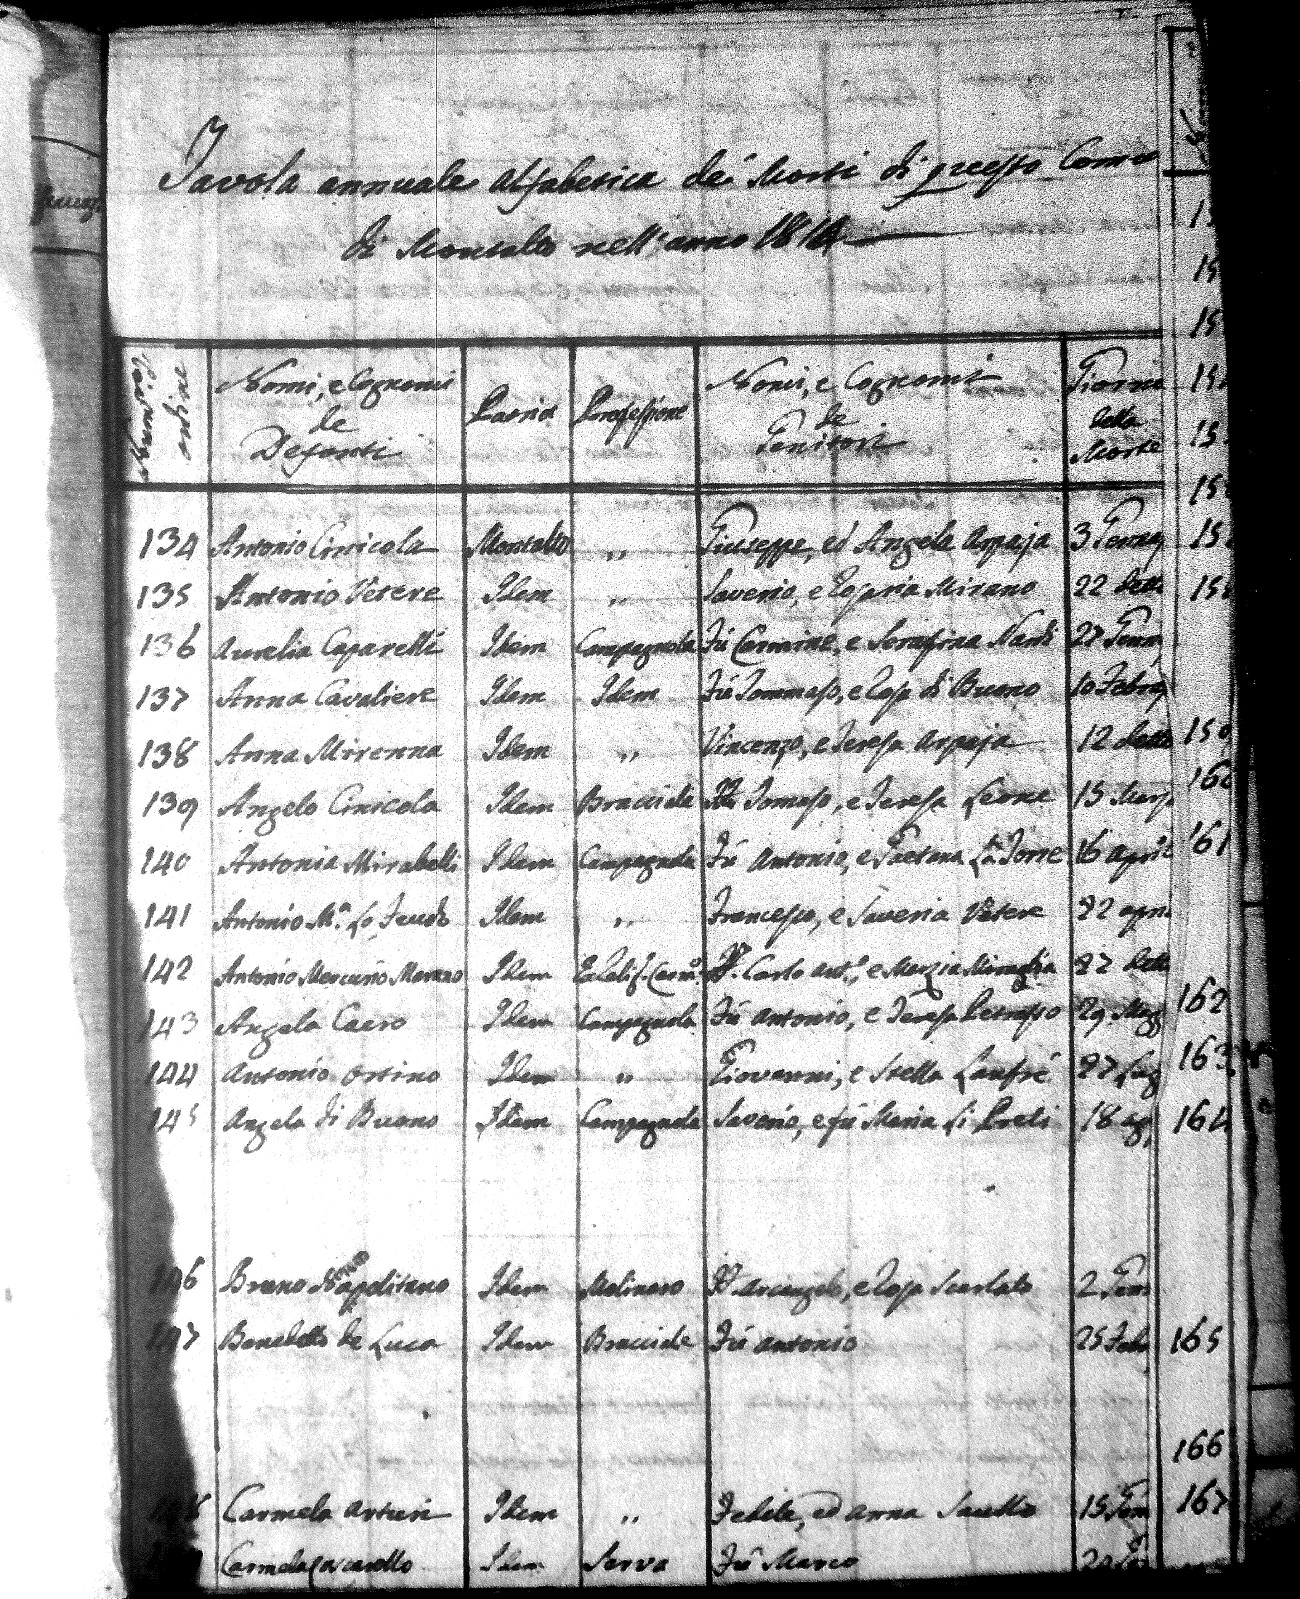 Tavola annuale alfabetica de' Morti di questo Comu
di Montalto nell'anno 1814
Num.º ordine
Nomi, e Cognomi de Defonti
Patria
Professione
Nomi, e Cognomi de Genitori
Giorni della Morte
134 Antonio Cinicola Montalto ,, Giuseppe, ed Angela Arpaja 3 Genna
135 Antonio Vetere Idem ,, Saverio, e Rosaria Mirano 22 detto
136 Aurelia Caparelli Idem Campagnola Fù Carmine, e Serafina Nardi 27 Genn
137 Anna Cavaliere Idem Idem Fù Tommaso, e Rosa di Buono 10 Febra
138 Anna Mirenna Idem ,, Vincenzo, e Teresa Arpaja 12 detto
139 Angelo Cinicola Idem Bracciale Tomaso, e Teresa Leone 15 Marz
140 Antonia Mirabelli Idem Campagnola Fù Antonio, e Gaetana La Torre 16 April
141 Antonio M.ª Lo Feudo Idem ,, Francesco, e Saveria Vetere 22 apri
142 Antonio Mercurio Idem Carlo Ant.º, e Marzia 27 dett
143 Angela Caero Idem Campagnola Fù Antonio, e Teresa Petrasso 29 Mag
144 Antonio Ortino Idem ,, Giovanni, e Stella Lanfré 27 Lug
145 Angela di Buono Idem Campagnola Saverio, e fù Maria Li Preti 18 ag
146 Bruno Napolitano Idem Molinaro Arcangelo, e Rosa Scarlato 2 Gen
147 Benedetto de Luca Idem Bracciale Fù Antonio 25 Feb
148 Carmela Arturi Idem ,, Fedele, ed Anna 15 Gen
Carmela Cascarello Idem Serva Fù Marco
159
160
161
162
163
164
165
166
167